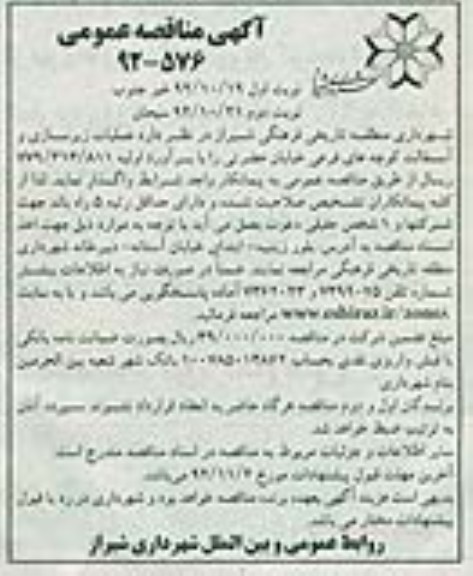 آگهی مناقصه عمومی
۹۲-۵۷۶
نوبت اول ۹۲/۱۰/۱۹ خبر جنوب
نوبت دوم ۹۲/۱۰/۲۱ سبحان
شهرداری منطقه تاریخی فرهنگی شیراز در نظر دارد عملیات زیرسازی و
آسفالت کوچه های فرعی خیابان حضرتی را با برآورد اولیه
ریال از طریق مناقصه عمومی به پیمانکار واجد شرایط واگذار نماید لذا از
کلیه پیمانکاران تشخیص صلاحیت شده و دارای حداقل رتبه ۵ راه باند جهت
شرکتها و ۱ شخص حقیقی دعوت بعمل می آید با توجه به موارد ذیل جهت اخذ
اسناد مناقصه به آدرس: بلوار زینبیه- ابتدای خیابان آستانه- دبیرخانه شهرداری
منطقه تاریخی فرهنگی مراجعه نمایند. ضمناً در صورت نیاز به اطلاعات بیشتر
شماره تلفن و آماده پاسخگویی می باشد و یا به سایت
مراجعه فرمائید.
مبلغ تضمین شرکت در مناقصه ۳۹/۰۰۰/۰۰۰ ریال بصورت ضمانت نامه بانکی
یا فیش واریزی نقدی بحساب بانک شهر شعبه بین الحرمین
بنام شهرداری
برندگان اول و دوم مناقصه هرگاه حاضر به انعقاد قرارداد نشوند سپرده آنان
به ترتیب ضبط خواهد شد.
سایر اطلاعات و جزئیات مربوط به مناقصه در اسناد مناقصه مندرج است.
آخرین مهلت قبول پیشنهادات مورخ ۹۲/۱۱/۲ می باشد.
بدیهی است هزینه آگهی بعهده برنده مناقصه خواهد بود و شهرداری در رد یا قبول
پیشنهادات مختار می باشد.
روابط عمومی و بین الملل شهرداری شیراز